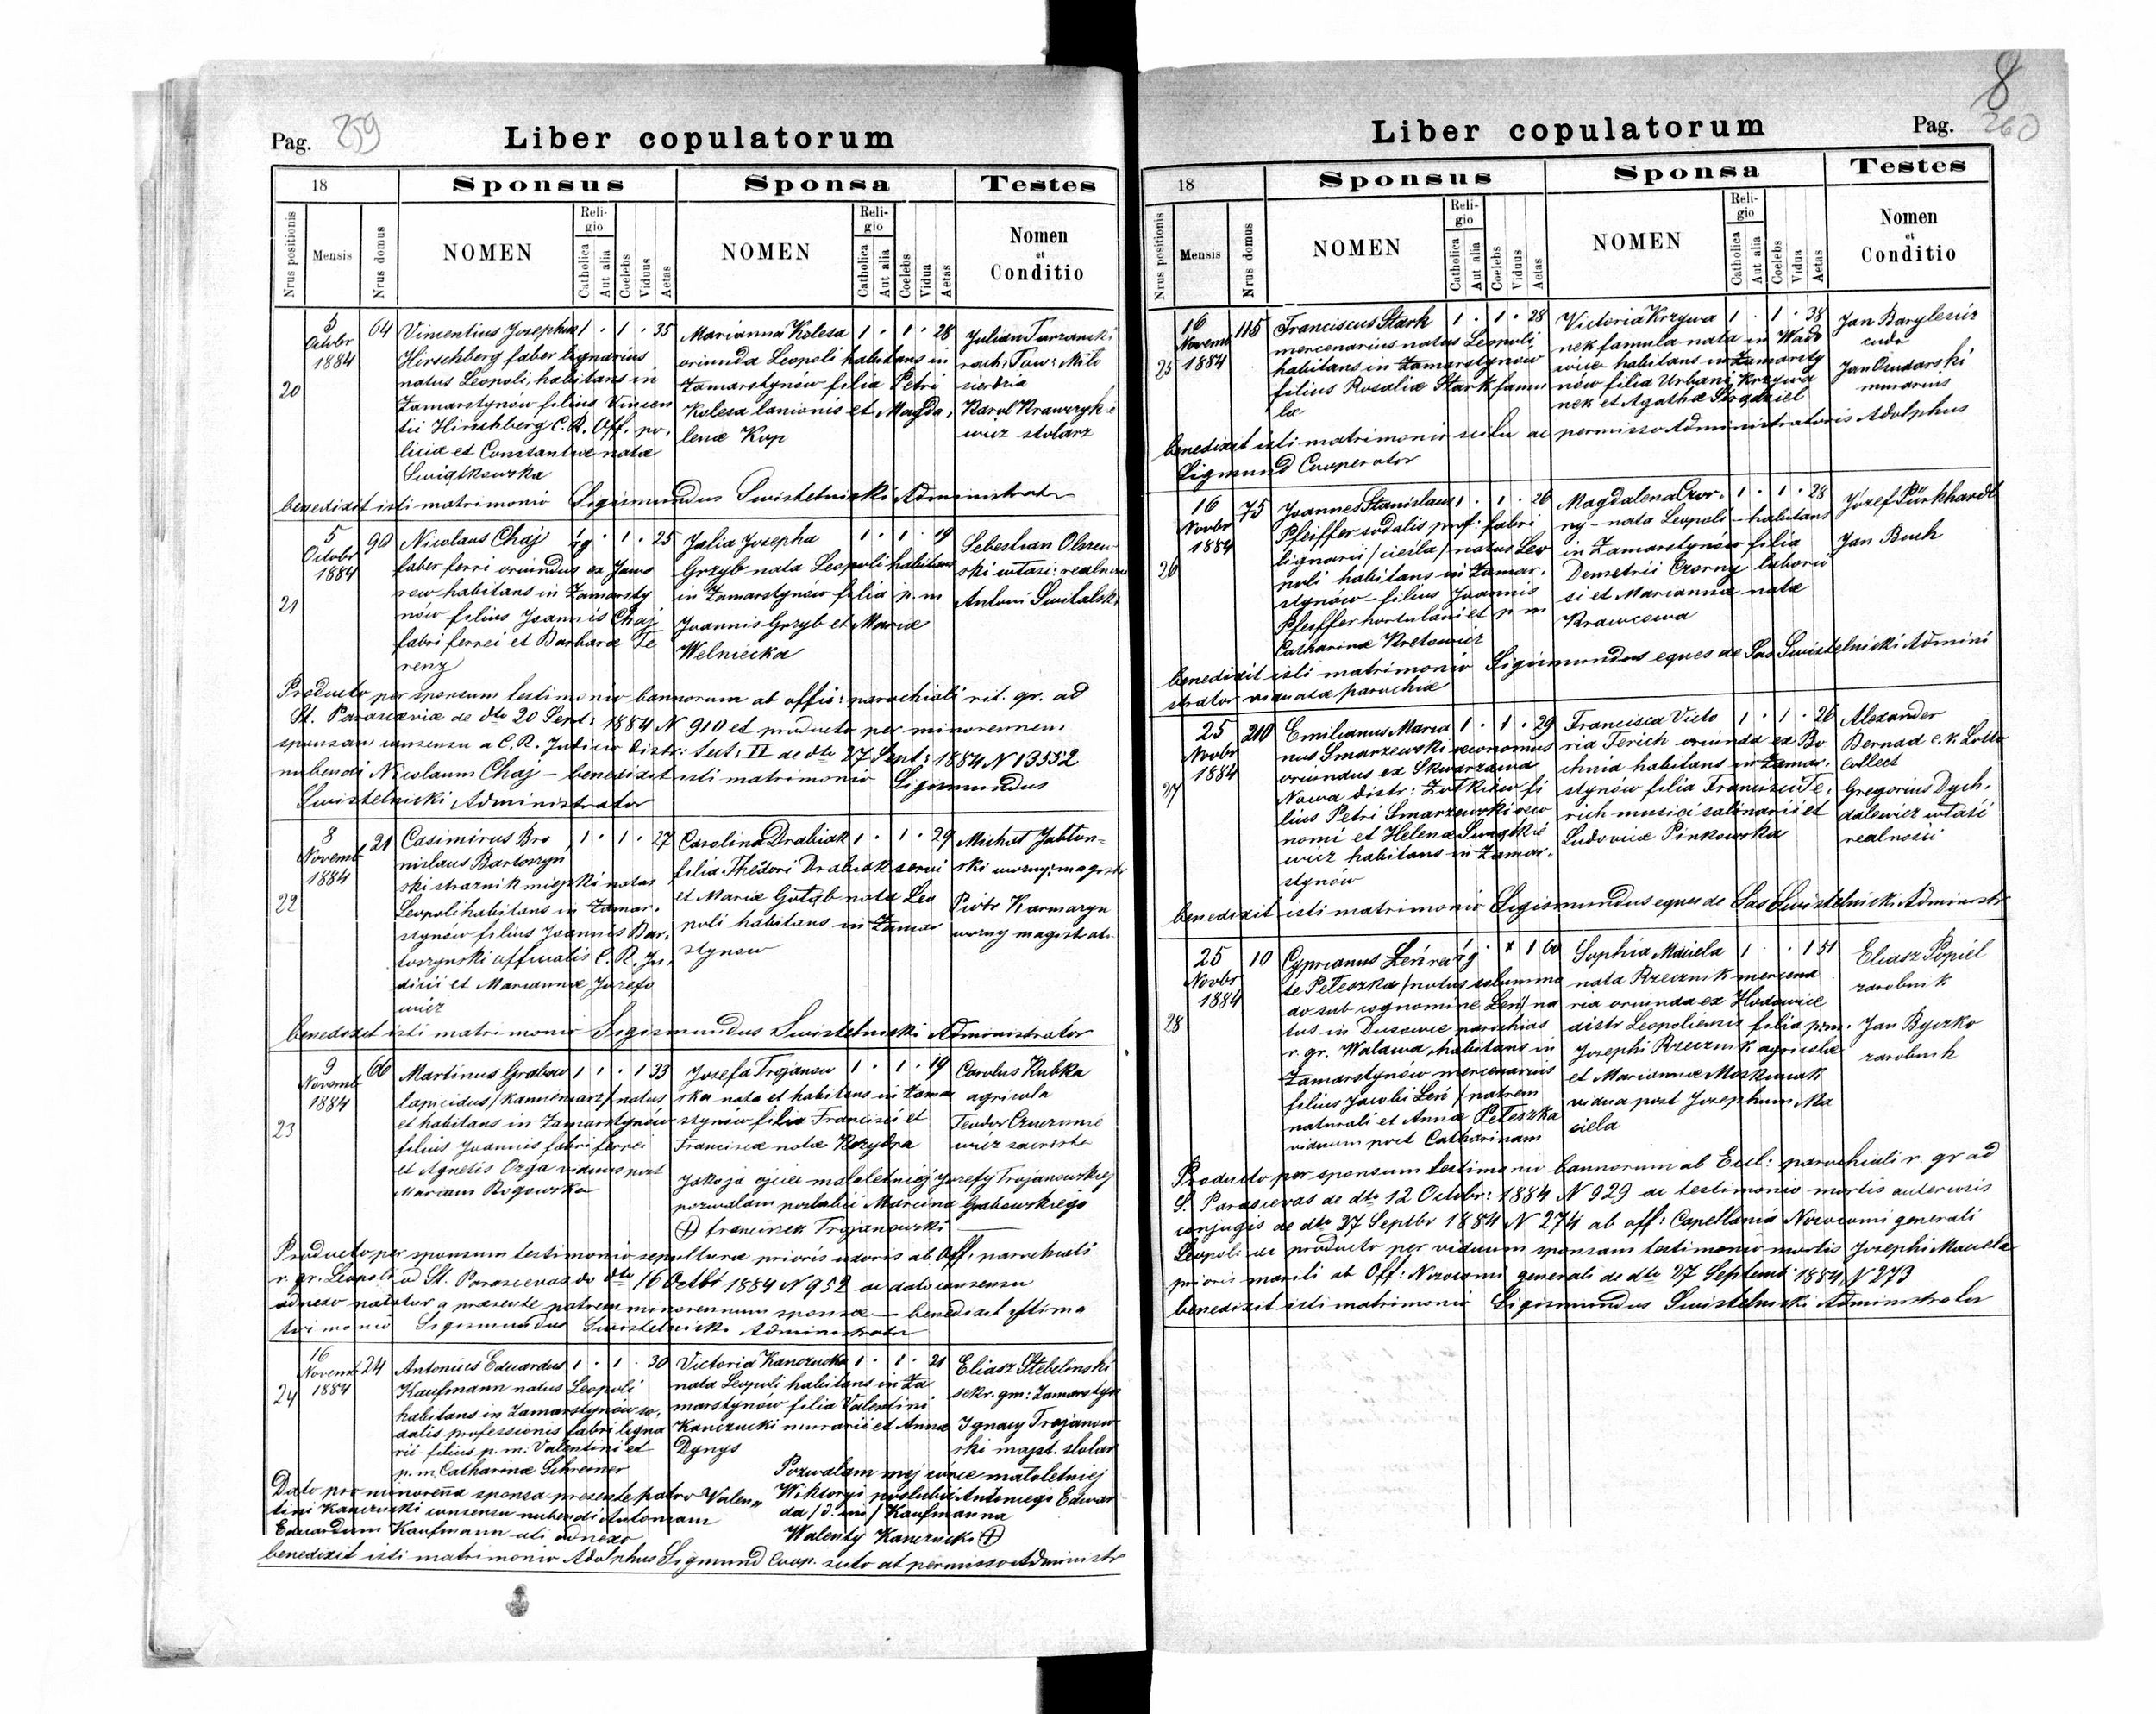 Pag. 259
Liber copulatorum
18 Sponsus Sponsa Testes
Nrus positionis Mensis Nrus domus NOMEN Religio Catholica Aut alia Coelebs Viduus Aetas NOMEN Religio Catholica Aut alia Coelebs Vidua Aetas Nomen et Conditio
20
5 Octobr 1884
64
Vincentius Josephus 1 · 1 · 35
Hirschberg faber lignarius
natus Leopoli, habitans in
Zamarstynów filius Vincen
tii Hirschberg C. R. Off. po,
liciæ et Constantiæ natæ
Swiątkowska
Marianna Kolesa 1 · 1 · 28
oriunda Leopoli habitans in
Zamarstynów filia Petri
Kolesa lanionis et Magda,
lenæ Kop
Julian Turzanski
rach: Tow: Miło
sierdzia
Karol Krawczyk
wicz stolarz
benedixit isti matrimonio Sigismundus Swistelnicki Administrator
21
5 Octobr 1884
90
Nicolaus Chaj rg · 1 · 25
faber ferri oriundus ex Jawo
row habitans in Zamarsty
nów filius Joannis Chaj
fabri ferrei et Barbaræ Te
renz
Julia Josepha 1 · 1 · 19
Grzyb nata Leopoli habitans
in Zamarstynów filia p. m
Joannis Grzyb et Mariæ
Welniecka
Sebestian Olszew
ski właśc: realności
Antoni Switalski
Producto per sponsum testimonio bannorum ab offic: parochiali rit. gr. ad
St. Parasceviæ de dto 20 Sept: 1884 N 910 et producto per minorennem
sponsam consensu a C. R. Judicio Distr: Sect: II de dto 27 Sept: 1884 N 13552
nubendi Nicolaum Chaj – benedixit isti matrimonio Sigismundus
Swistelnicki Administrator
22
8 Novemb 1884
21
Casimirus Bro 1 · 1 · 27
nislaus Bartoszyn
ski strażnik miejski natus
Leopoli habitans in Zamar.
stynów filius Joannis Bar.
toszynski officialis C. R. Ju.
dicii et Mariannæ Jozefo
wicz
Carolina Drabiak 1 · 1 · 29
filia Theodori Drabiak servi
et Mariæ Gołąb nata Leo
poli habitans in Zamar
stynow
Michał Jabłon=
ski woźny magistr
Piotr Karmazyn
woźny magistratu
benedixit isti matrimonio Sigismundus Swistelnicki Administrator
23
9 Novemb 1884
66
Martinus Grabow 1 · 1 · 1 33
lapicidus / kamieniarz / natus
et habitans in Zamarstynów
filius Joannis fabri ferrei
et Agnetis Orga viduus post
Mariam Rogowska
Josefa Trojanow 1 · 1 · 19
ska nata et habitans in Zama
stynów filia Francisci et
Franciscæ natæ Kozydra
Carolus Kubka
agricola
Teodor
wicz
Jako ja ojciec małoletniej Jozefy Trojanowskiej
pozwalam poślubić Marcina Grabowskiego
+ franciszek Trojanowski
Producto per sponsum testimonio sepulturæ prioris uxoris ab Off. parochiali
r. gr. Leopoli ad St. Parascevas de dto 16 Octbr 1884 N 952 ac dato consensu
adnexo notatur a præsente patre minorennem sponsæ – benedixit istima
trimonio Sigismundus Swistelnicki Administrator
24
16 Novemb 1884
24
Antonius Eduardus 1 · 1 · 30
Kaufmann natus Leopoli
habitans in Zamarstynów so,
dalis professionis fabri ligna
rii filius p. m. Valentini et
p. m. Catharinæ Schreiner
Victoria Kanczucka 1 · 1 · 21
nata Leopoli habitans in Za
marstynow filia Valentini
Kanczucki murarii et Annæ
Dynys
Eliasz Stebelinski
sekr. gm: Zamarstyn
Ignacy Trojanow
ski majst. stolar
Dato pro minorenna sponsa presente patre Valen„
tini Kanczucki consensu nubendi Antonium
Eduardum Kaufmann uti adnexo
Pozwalam mej córce małoletniej
Wiktoryi poślubić Antoniego Edwar
da /2. im/ Kaufmanna
Walenty Kanczucki +
benedixit isti matrimonio Adolphus Sigmund Coop. scitu at permisso Administr
8
Liber copulatorum
Pag. 260
18 Sponsus Sponsa Testes
Nrus positionis Mensis Nrus domus NOMEN Religio Catholica Aut alia Coelebs Viduus Aetas NOMEN Religio Catholica Aut alia Coelebs Vidua Aetas Nomen et Conditio
25
16 Novemb 1884
115
Franciscus Stark 1 · 1 · 28
mercenarius natus Leopoli
habitans in Zamarstynow
filius Rosaliæ Stark famu
læ
Victoria Krzywa 1 · 1 · 38
nek famula nata in Wado
wice habitans in Zamarsty
nów filia Urbani Krzywa
nek et Agathæ
Jan Barylewicz
Jan
murarius
benedixit isti matrimonio scitu ac permisso Administratoris Adolphus
Sigmund Cooperator
26
16 Novbr 1884
75
Joannes Stanislaus 1 · 1 · 26
Pfeiffer sodalis prof: fabri
lignarii / cieśla / natus Leo
poli habitans in Zamar.
stynów – filius Joannis
Pfeiffer hortulani et p m
Catharinæ Kretowicz
Magdalena Czor. 1 · 1 · 28
ny – nata Leopoli – habitans
in Zamarstynów filia
Demetrii Czorny laborio
si et Mariannæ natæ
Krawcowa
Józef Pürkhardt
Jan Buch
benedixit isti matrimonio Sigismundus eques de Sas Swistelnicki Admini
strator viduatæ parochiæ
27
25 Novbr 1884
210
Emilianus Maria 1 · 1 · 29
nus Smarzewski oeconomus
oriundus ex Skwarzawa
Nowa distr: Żołkiew fi
lius Petri Smarzewski oeco
nomi et Helenæ
wicz habitans in Zamar.
stynów
Francisca Victo 1 · 1 · 26
ria Terich oriunda ex Bo
chnia habitans in Zamar.
stynów filia Francisci Te.
rich musici salinarii et
Ludovicæ Pinkowska
Alexander
Bernad c. k. Lotto
Collect
Gregorius Dych.
dalewicz właśc
realności
benedixit isti matrimonio Sigismundus eques de Sas Swistelnicki Administr
28
25 Novbr 1884
10
Cyprianus Leń rg · 1 60
te Peleszka / notus solummo
do sub cognomine Leń / na
tus in Dusowce parochias
r. gr. Walawa, habitans in
Zamarstynów mercenarius
filius Jacobi Leń / patrem
naturali et Annæ Peleszka
viduum post Catharinam
Sophia Maciela 1 · · 1 51
nata Rzecznik mercena
ria oriunda ex Hodowice
distr Leopoliensis filia p m.
Josephi Rzecznik agricolæ
et Mariannæ
vidua post Josephum Ma
ciela
Eliasz Popiel
zarobnik
Jan Byczko
zarobnik
Producto per sponsum testimonio bannorum ab Eccl: parochiali r. gr ad
S. Parascevas de dto 12 Octobr: 1884 N 929 ac testimonio mortis anterioris
conjugis de dto 27 Septbr 1884 N 274 ab off: Capellania Nosocomi generali
Leopoli ac producto per viduam sponsam testimonio mortis Josephi Maciela
prioris mariti ab Off: Nosocomi generali de dto 27 Septemb 1884 N 273
benedixit isti matrimonio Sigismundus Swistelnicki Administrator